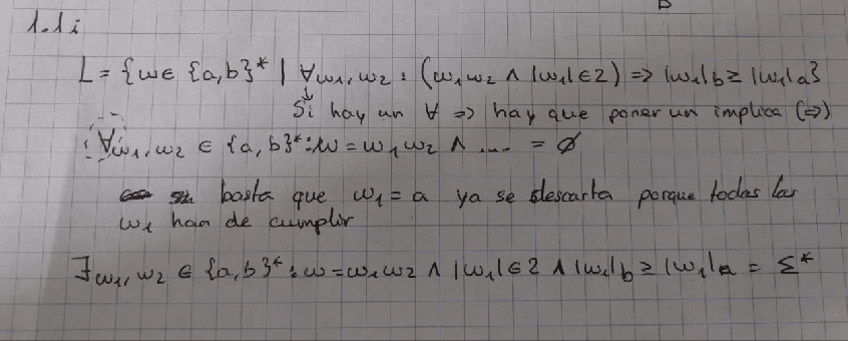 B
1.1i
L = {w ∈ {a,b}* | ∀w1,w2 : (w1w2 ∧ |w1| ∈ 2) => |w1|b ≥ |w1|a}
Si hay un ∀ => hay que poner un implica (=>)
¡∀w1,w2 ∈ {a,b}* : w = w1w2 ∧ .... = ∅
basta que w1 = a ya se descarta porque todas las
w1 han de cumplir
∃w1,w2 ∈ {a,b}* : w = w1w2 ∧ |w1| ∈ 2 ∧ |w1|b ≥ |w1|a = Σ*